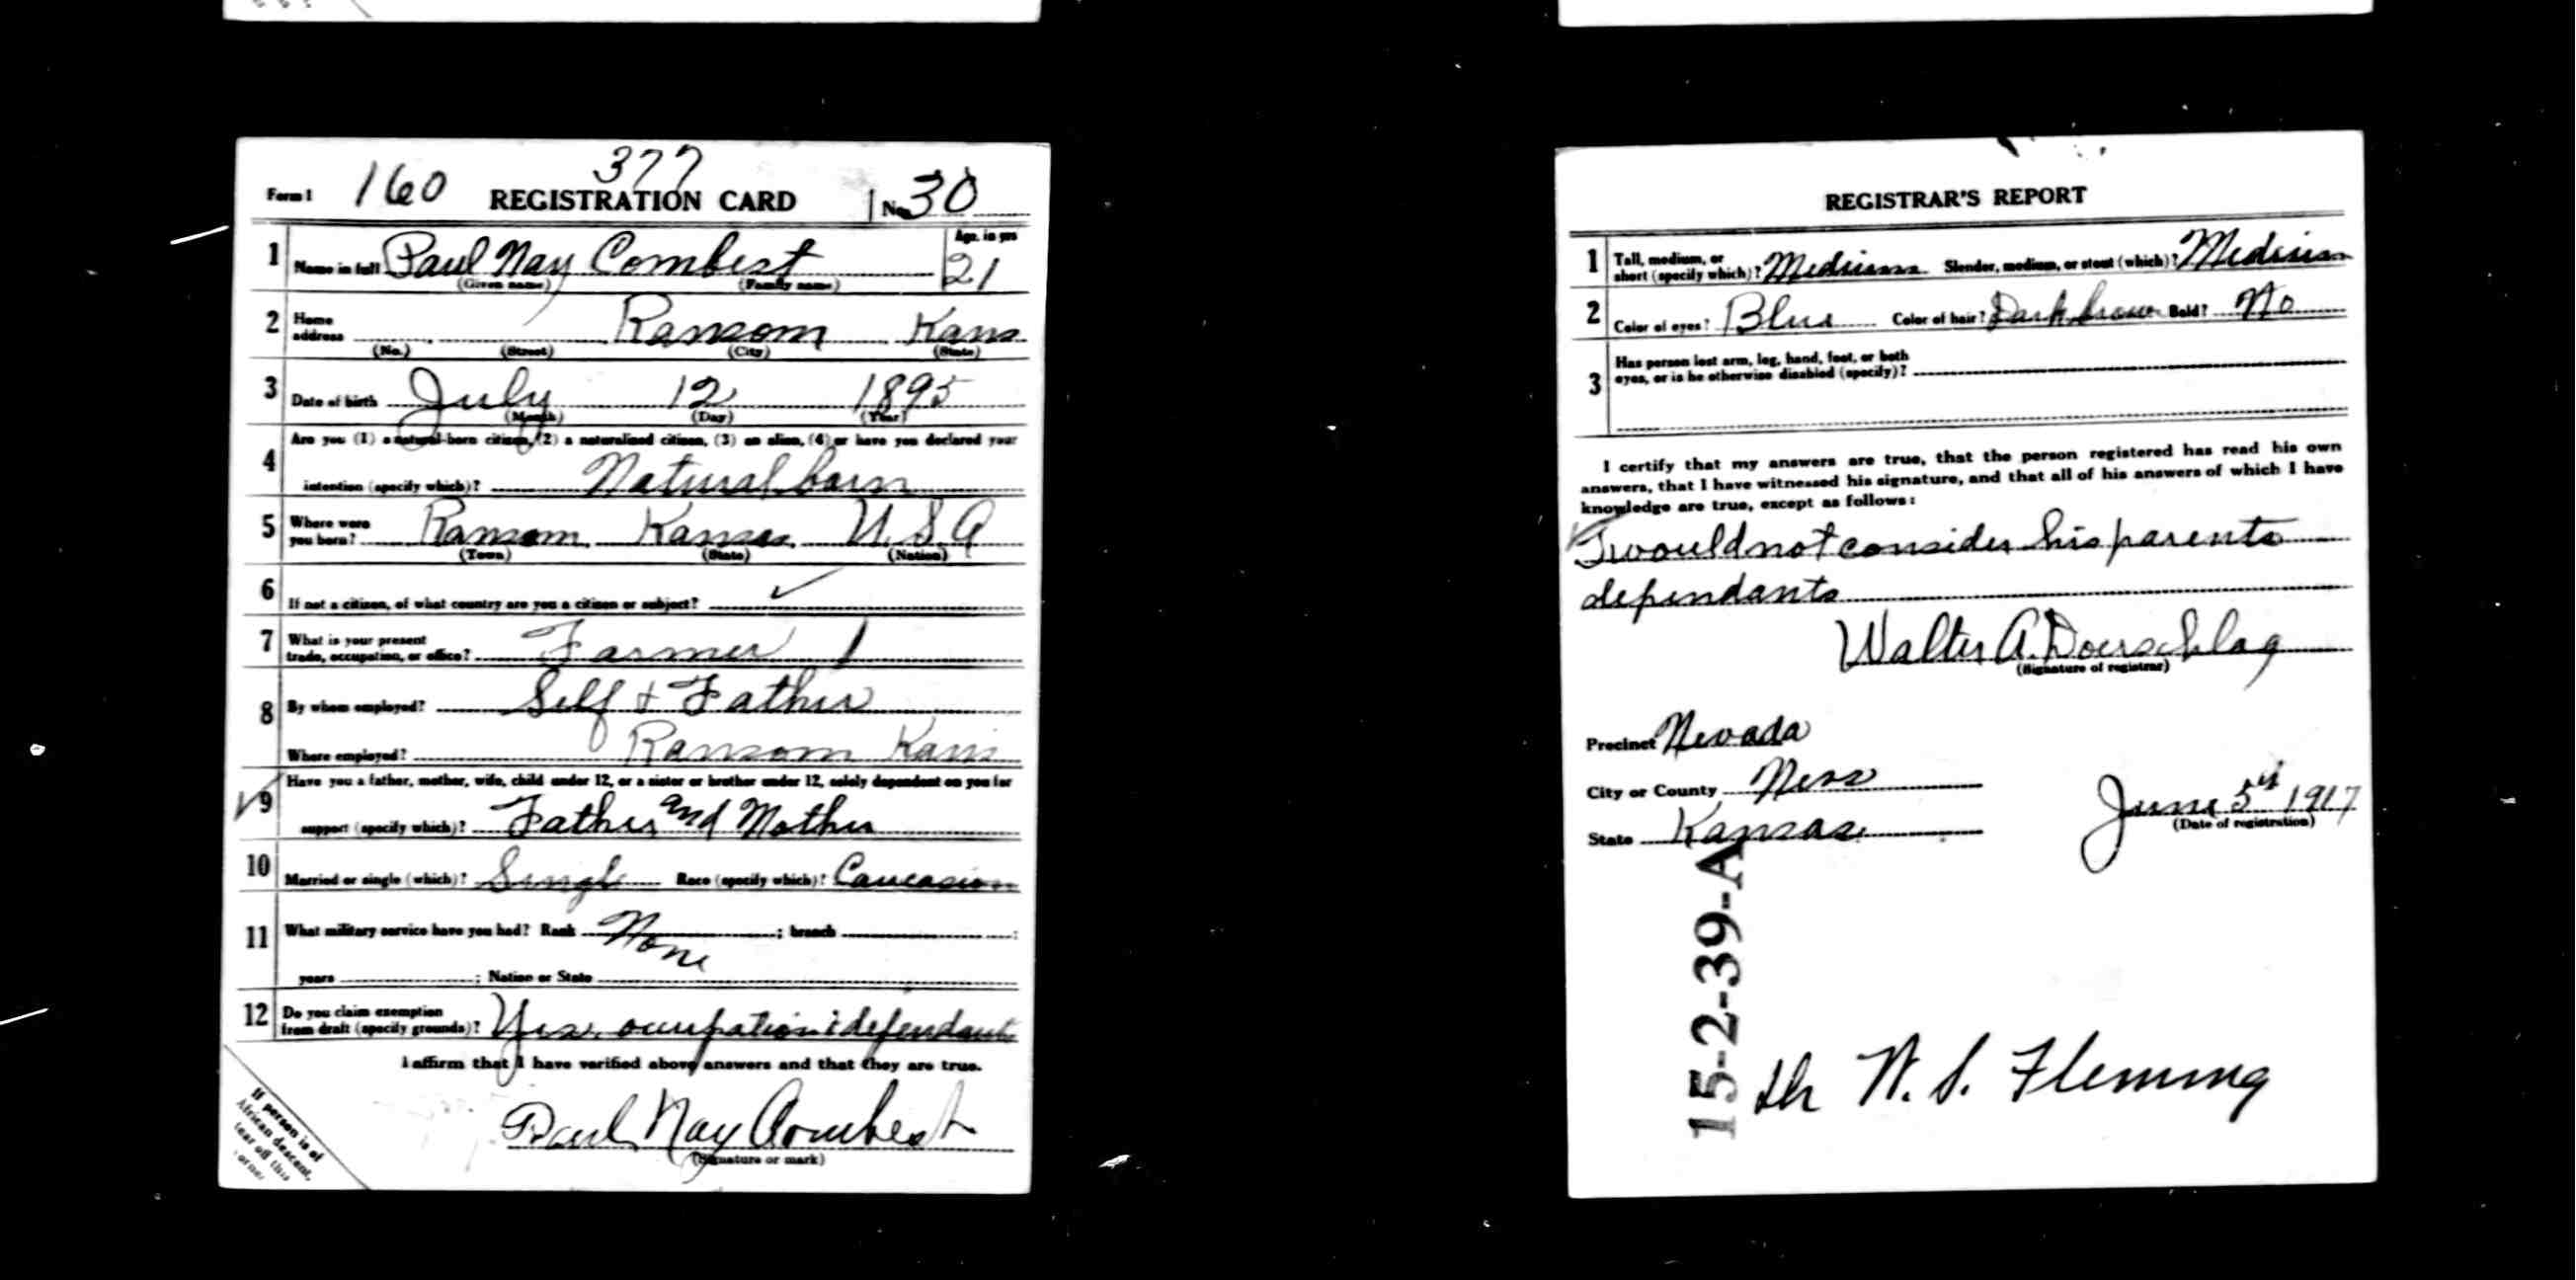 377
Form 1 160 REGISTRATION CARD No. 30
1 Name in full Paul Nay Combest Age, in yrs 21
(Given name) (Family name)
2 Home address Ransom Kans
(No.) (Street) (City) (State)
3 Date of birth July 12 1895
(Month) (Day) (Year)
4 Are you (1) a natural-born citizen, (2) a naturalized citizen, (3) an alien, (4) or have you declared your
intention (specify which)? Natural born
5 Where were you born? Ransom Kansas U.S.A
(Town) (State) (Nation)
6 If not a citizen, of what country are you a citizen or subject?
7 What is your present
trade, occupation, or office? Farmer 1
8 By whom employed? Self + Father
Where employed? Ransom Kans
9 Have you a father, mother, wife, child under 12, or a sister or brother under 12, solely dependent on you for
support (specify which)? Father and Mother
10 Married or single (which)? Single Race (specify which)? Caucasion
11 What military service have you had? Rank None ; branch ;
years ; Nation or State
12 Do you claim exemption
from draft (specify grounds)? Yes. occupation & dependants
I affirm that I have verified above answers and that they are true.
Paul Nay Combest
(Signature or mark)
If person is of
African descent,
tear off this
corner
REGISTRAR'S REPORT
1 Tall, medium, or
short (specify which)? Medium Slender, medium, or stout (which)? Medium
2 Color of eyes? Blue Color of hair? Dark brown Bald? No
3 Has person lost arm, leg, hand, foot, or both
eyes, or is he otherwise disabled (specify)?
I certify that my answers are true, that the person registered has read his own
answers, that I have witnessed his signature, and that all of his answers of which I have
knowledge are true, except as follows:
I would not consider his parents
dependants
Walter A. Doerschlag
(Signature of registrar)
Precinct Nevada
City or County Ness
State Kansas
June 5th 1917
(Date of registration)
15-2-39-A
W. S. Fleming